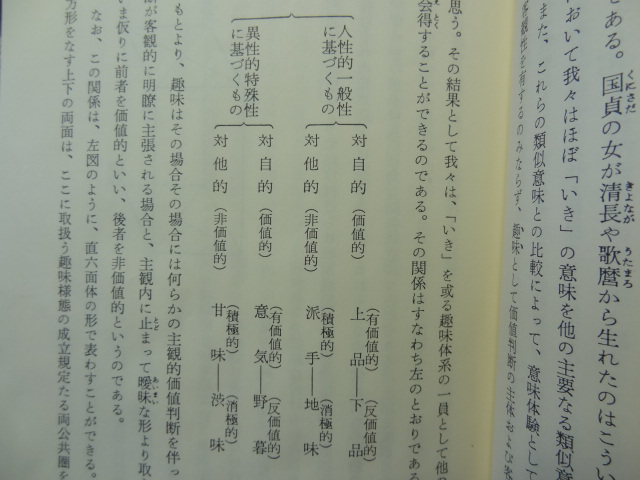 である。国貞の女が清長や歌麿から生れたのはこうい
において我々はほぼ「いき」の意味を他の主要なる類似意
また、これらの類似意味との比較によって、意味体験として
客観性を有するのみならず、趣味として価値判断の主体および客
思う。その結果として我々は、「いき」を或る趣味体系の一員として他の
会得することができるのである。その関係はすなわち左のとおりである
人性的一般性に基づくもの
対自的(価値的) 上品(有価値的)―下品(反価値的)
対他的(非価値的) 派手(積極的)―地味(消極的)
異性的特殊性に基づくもの
対自的(価値的) 意気(有価値的)―野暮(反価値的)
対他的(非価値的) 甘味(積極的)―渋味(消極的)
もとより、趣味はその場合その場合には何らかの主観的価値判断を伴っ
断が客観的に明瞭に主張される場合と、主観内に止まって曖昧な形より取
いま仮りに前者を価値的といい、後者を非価値的というのである。
なお、この関係は、左図のように、直六面体の形で表わすことができる。
方形をなす上下の両面は、ここに取扱う趣味様態の成立規定たる両公共圏を